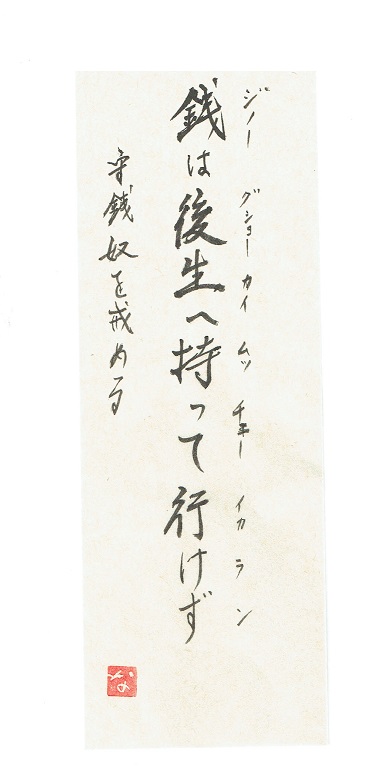 ジノー グショーカイ ムッチェー イカラン
銭は後生へ持って行けず
守銭奴を戒める
な